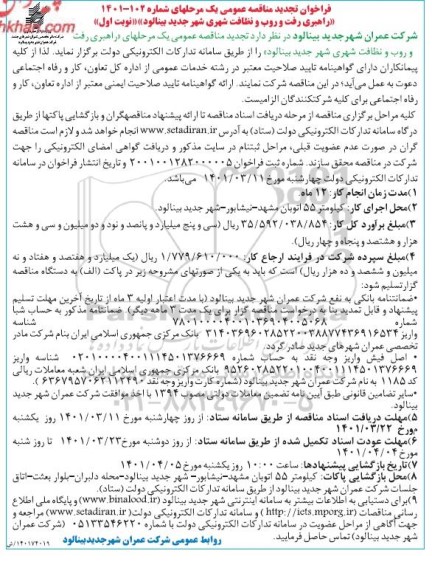 فراخوان تجدید مناقصه عمومی یک مرحلهای شماره ۱۰۲-۱۴۰۱
«راهبری رفت و روب و نظافت شهری شهر جدید بینالود» «نوبت اول»
شرکت عمران شهر جدید بینالود در نظر دارد تجدید مناقصه عمومی یک مرحلهای «راهبری رفت
و روب و نظافت شهری شهر جدید بینالود» را از طریق سامانه تدارکات الکترونیکی دولت برگزار نماید. لذا از کلیه
پیمانکاران دارای گواهینامه تایید صلاحیت معتبر در رشته خدمات عمومی از اداره کل تعاون، کار و رفاه اجتماعی
دعوت به عمل می‌آید؛ در این مناقصه شرکت نمایند. ارائه گواهینامه تایید صلاحیت ایمنی معتبر از اداره تعاون، کار و
رفاه اجتماعی برای کلیه شرکتکنندگان الزامیست.
کلیه مراحل برگزاری مناقصه از مرحله دریافت اسناد مناقصه تا ارائه پیشنهاد مناقصهگران و بازگشایی پاکتها از طریق
درگاه سامانه تدارکات الکترونیکی دولت (ستاد) به آدرس www.setadiran.ir انجام خواهد شد و لازم است مناقصه
گران در صورت عدم عضویت قبلی، مراحل ثبتنام در سایت مذکور و دریافت گواهی امضای الکترونیکی را جهت
شرکت در مناقصه محقق سازند. شماره ثبت فراخوان ۲۰۰۱۰۰۱۲۸۲۰۰۰۰۰۵ و تاریخ انتشار فراخوان در سامانه
تدارکات الکترونیکی دولت چهارشنبه مورخ ۱۴۰۱/۰۳/۱۱ می‌باشد.
۱)مدت زمان انجام کار: ۱۲ ماه
۲)محل اجرای کار: کیلومتر ۵۵ اتوبان مشهد-نیشابور-شهر جدید بینالود.
۳)مبلغ برآورد کل کار: ۳۵/۵۹۲/۰۳۸/۸۵۴ ریال (سی و پنج میلیارد و پانصد و نود و دو میلیون و سی و هشت
هزار و هشتصد و پنجاه و چهار ریال).
۴)مبلغ سپرده شرکت در فرایند ارجاع کار: ۱/۷۷۹/۶۱۰/۰۰۰ ریال (یک میلیارد و هفتصد و هفتاد و نه
میلیون و ششصد و ده هزار ریال) است که باید به یکی از صورتهای مشروحه زیر در پاکت (الف) به دستگاه مناقصه
گزار تسلیم شود:
*ضمانتنامه بانکی به نفع شرکت عمران شهر جدید بینالود (با مدت اعتبار اولیه ۳ ماه از تاریخ آخرین مهلت تسلیم
پیشنهاد و قابل تمدید بنا به درخواست مناقصه گزار برای یک مدت ۳ ماهه دیگر) ضمانتنامه مذکور به حساب شبا
شماره شناسه
واریز بانک مرکزی جمهوری اسلامی ایران بنام شرکت مادر
تخصصی عمران شهرهای جدید صادر گردد.
* اصل فیش واریز وجه نقد به حساب شماره شناسه واریز
بانک مرکزی جمهوری اسلامی ایران شعبه معاملات ریالی
کد ۱۱۸۵ به نام شرکت عمران شهر جدید بینالود (شماره کارت واریز وجه نقد ).
*سایر تضامین قانونی طبق آیین نامه تضمین معاملات دولتی مصوب ۱۳۹۴ با اخذ موافقت شرکت عمران شهر جدید
بینالود.
۵)مهلت دریافت اسناد مناقصه از طریق سامانه ستاد: از روز چهارشنبه مورخ ۱۴۰۱/۰۳/۱۱ روز یکشنبه
مورخ ۱۴۰۱/۰۳/۲۲.
۶)مهلت عودت اسناد تکمیل شده از طریق سامانه ستاد: از روز دوشنبه مورخ ۱۴۰۱/۰۳/۲۳ تا روز شنبه
مورخ ۱۴۰۱/۰۴/۰۴
۷)تاریخ بازگشایی پیشنهادها: ساعت ۱۰:۰۰ روز یکشنبه مورخ ۱۴۰۱/۰۴/۰۵
۸)محل بازگشایی پاکات: کیلومتر ۵۵ اتوبان مشهد-نیشابور- شهر جدید بینالود-محله دلبران-بلوار بعثت-اتاق
جلسات شرکت عمران شهر جدید بینالود از طریق سامانه تدارکات الکترونیکی دولت (ستاد).
۹)برای دستیابی به اطلاعات بیشتر به سامانه اینترنتی شهر جدید بینالود (www.binalood.ir) و پایگاه ملی اطلاع
رسانی مناقصات (http://iets.mporg.ir) و سامانه تدارکات الکترونیکی دولت (www.setadiran.ir) مراجعه و
جهت آگاهی از مراحل عضویت در سامانه تدارکات الکترونیکی دولت با شماره ۰۵۱۳۳۵۴۶۲۲۰ (شرکت عمران
شهر جدید بینالود) تماس حاصل فرمایید.
روابط عمومی شرکت عمران شهرجدیدبینالود